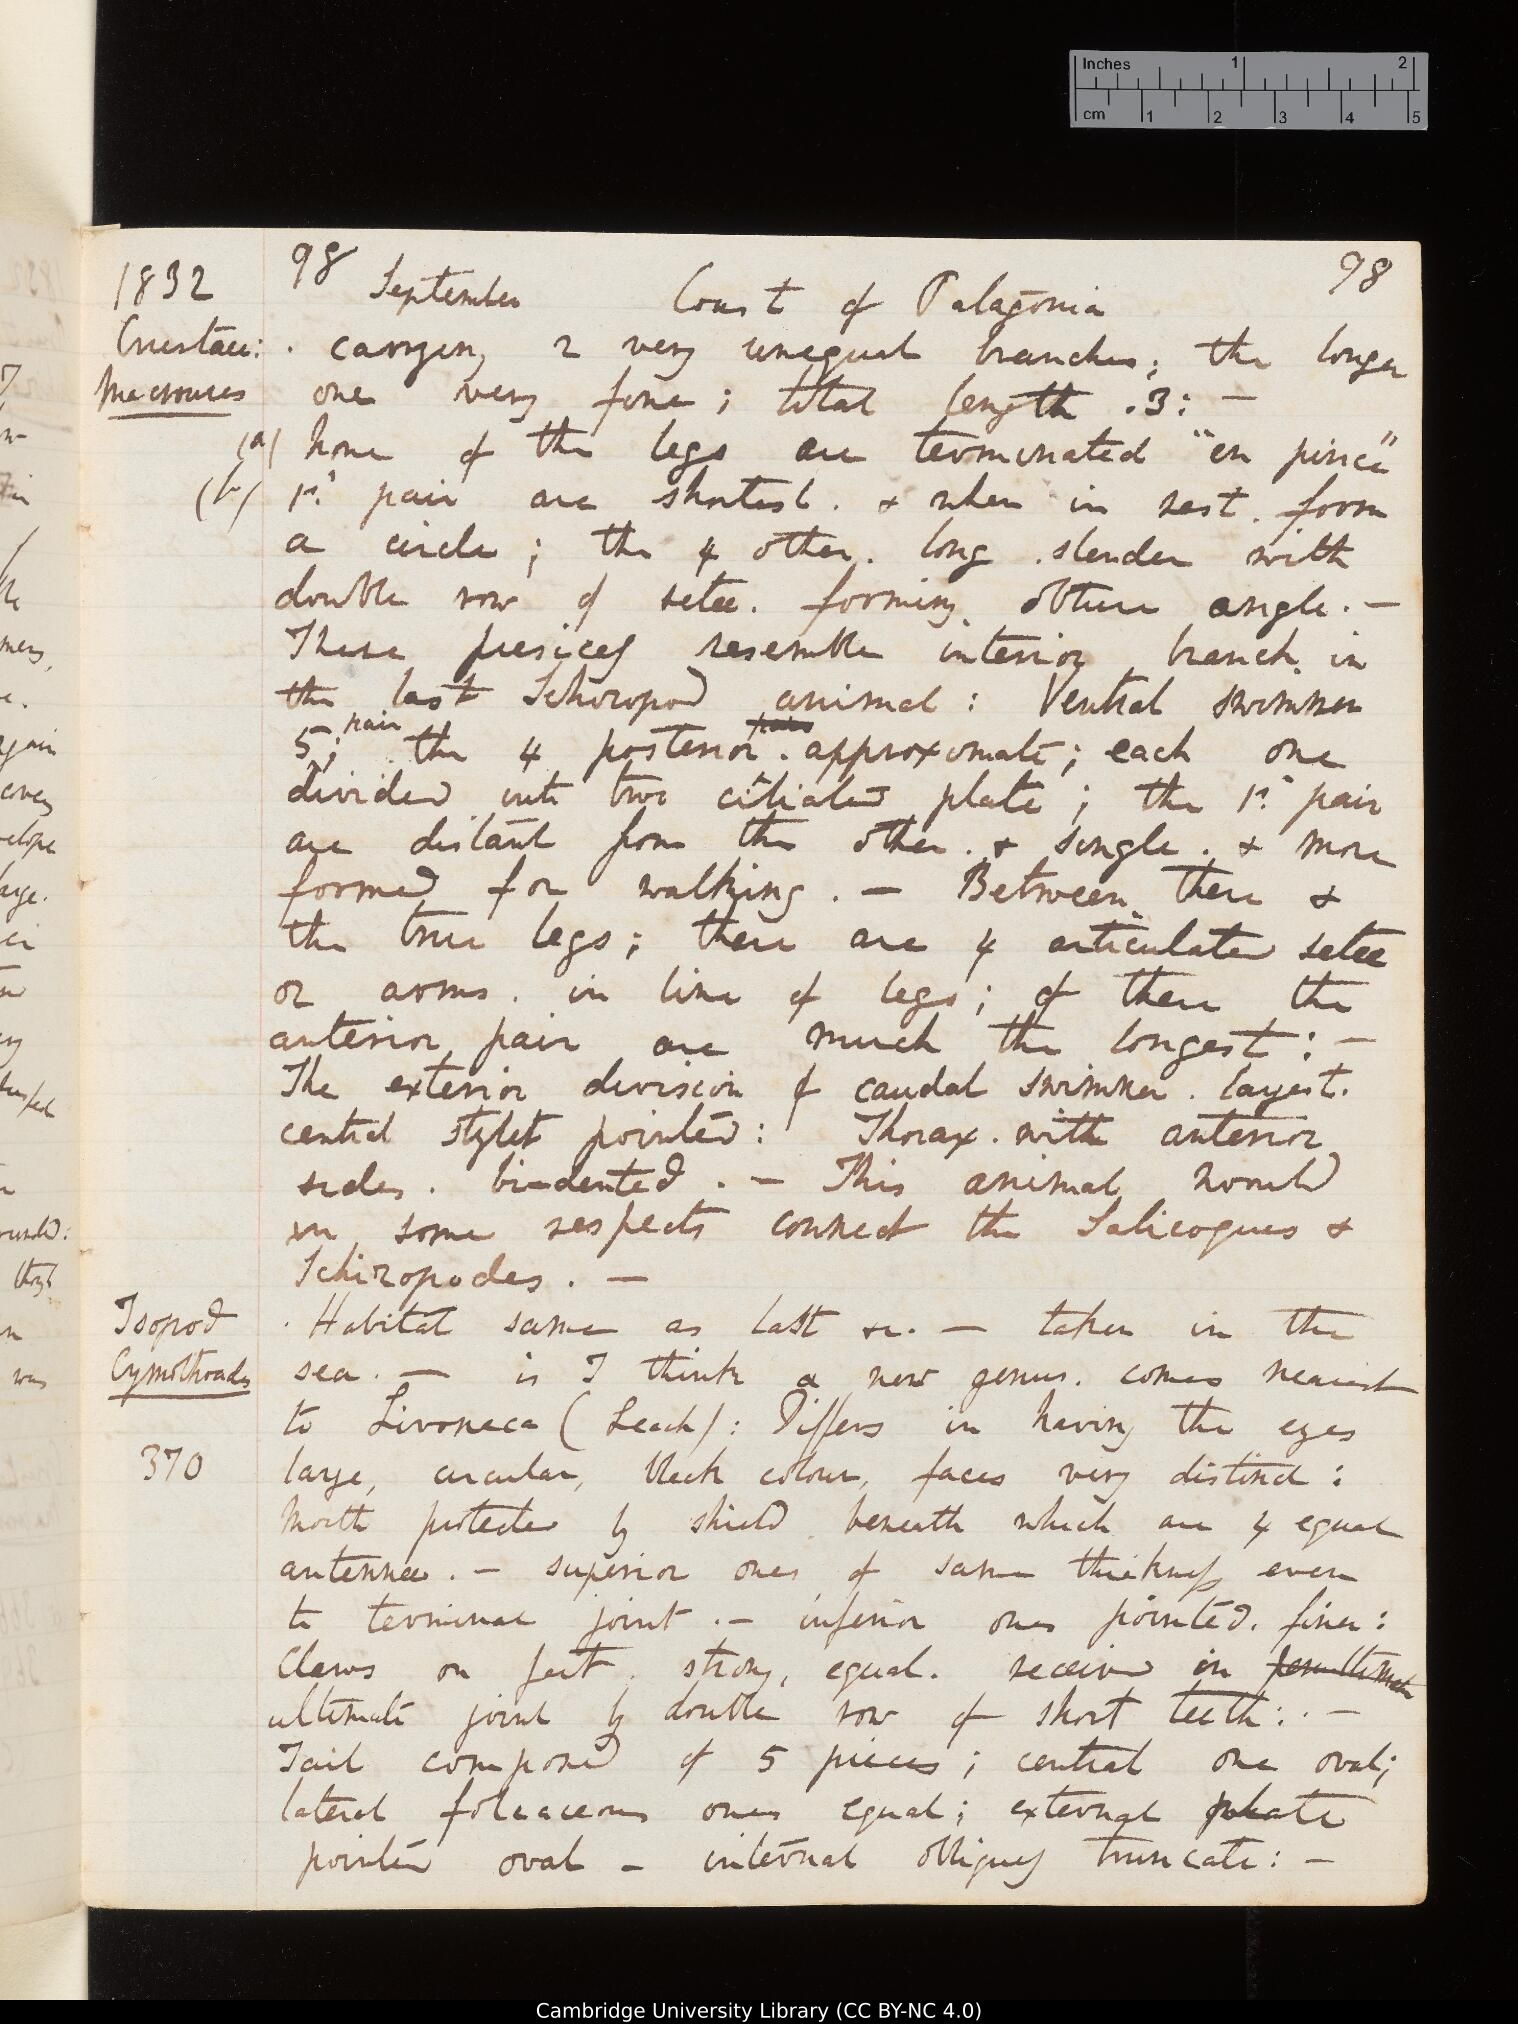 Inches 1 2
cm 1 2 3 4 5
98 98
1832 September Coast of Patagonia
Crustaceæ: . carrying 2 very unequal branches; the longer
Macroures one very fine; total length .3: —
(a) None of the legs are terminated "en pince"
(b) 1st pair are shortest. & when in rest. form
a circle; the 4 other. long slender with
double row of setæ. forming obtuse angle. —
These precisely resemble interior branch in
the last Schizopod animal: Ventral swimmer
5; pair the 4 posterior pairs. approximate; each one
divided into two ciliated plate; the 1st pair
are distant from the other. & single. & more
formed for walking. — Between these &
the true legs; there are 4 articulated setæ
or arms. in line of legs; of these the
anterior pair are much the longest: —
The exterior division of caudal swimmer. largest.
central stylet pointed: Thorax. with anterior
sides. bi-dented. — This animal would
in some respects connect the Salicoques &
Schizopodes. —
Isopod . Habitat same as last &c. — taken in the
Cymothoades sea. — is I think a new genus. comes nearest
to Livoneca (Leach): Differs in having the eyes
370 large, circular, black colour, faces very distinct:
Mouth protected by shield beneath which are 4 equal
antennæ. — superior ones of same thickness even
to terminal joint. — inferior ones pointed. finer:
Claws on feet. strong, equal. received in penultimate
ultimate joint by double row of short teeth: . —
Tail composed of 5 pieces; central one oval;
lateral foliaceous ones equal; external plate
pointed oval – internal obliquely truncate: —
Cambridge University Library (CC BY-NC 4.0)